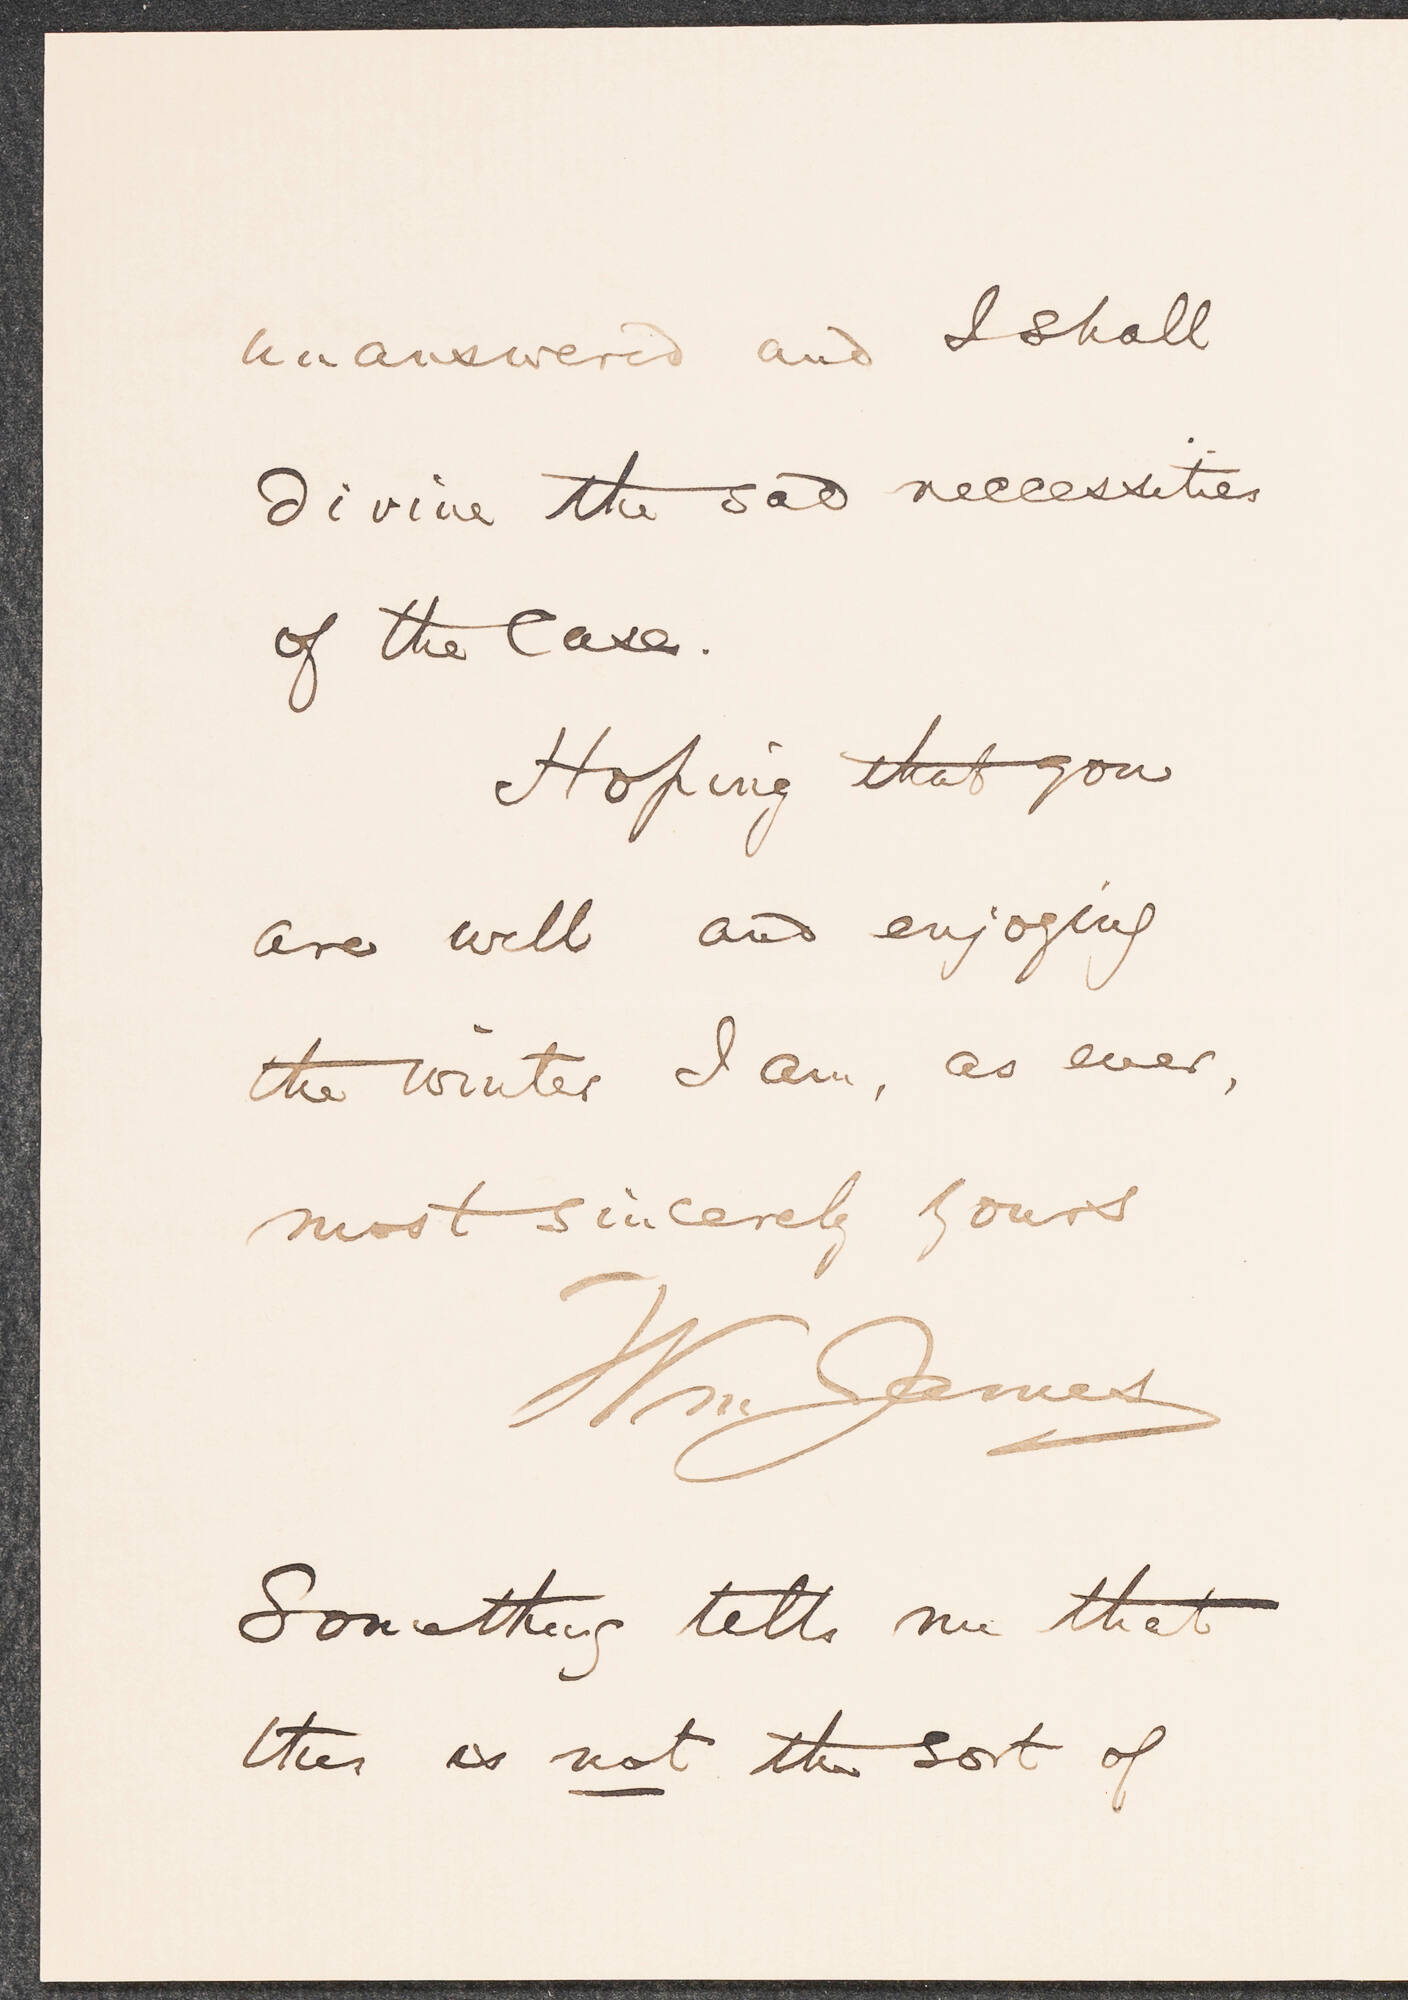 unanswered and I shall
divine the sad neccessities
of the case.
Hoping that you
are well and enjoying
the winter I am, as ever,
most sincerely yours
Wm James
Something tells me that
this is not the sort of